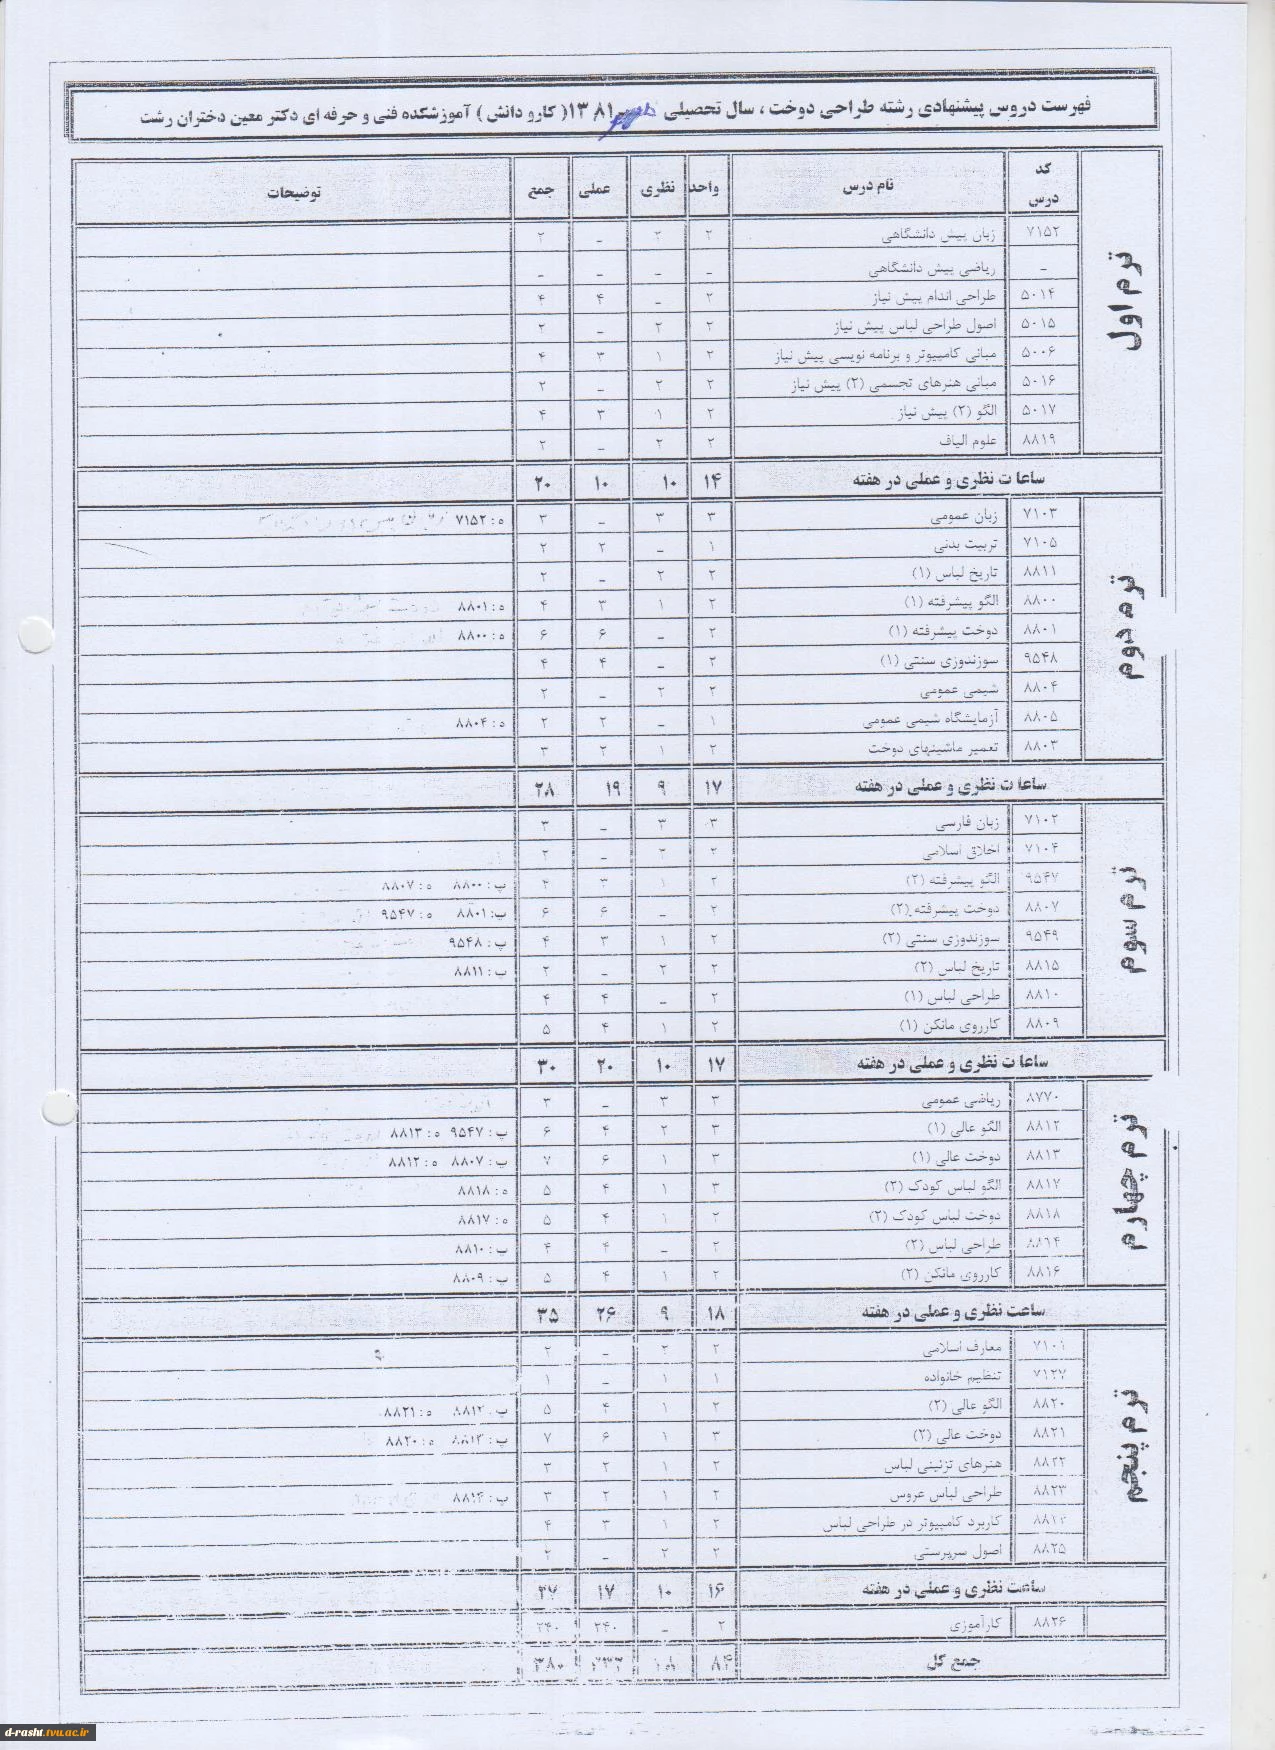 فهرست دروس پیشنهادی رشته طراحی دوخت ، سال تحصیلی ۱۳۸۱( کارو دانش ) آموزشکده فنی و حرفه ای دکتر معین دختران رشت
کد درس نام درس واحد نظری عملی جمع توضیحات
ترم اول
۷۱۵۲ زبان پیش دانشگاهی ۲ ۲ _ ۲
_ ریاضی پیش دانشگاهی _ _ _ _
۵۰۱۴ طراحی اندام پیش نیاز ۲ _ ۴ ۴
۵۰۱۵ اصول طراحی لباس پیش نیاز ۲ ۲ _ ۲
۵۰۰۶ مبانی کامپیوتر و برنامه نویسی پیش نیاز ۲ ۱ ۳ ۴
۵۰۱۶ مبانی هنرهای تجسمی (۲) پیش نیاز ۲ ۲ _ ۲
۵۰۱۷ الگو (۲) پیش نیاز ۲ ۱ ۳ ۴
۸۸۱۹ علوم الیاف ۲ ۲ _ ۲
ساعات نظری و عملی در هفته ۱۴ ۱۰ ۱۰ ۲۰
ترم دوم
۷۱۰۳ زبان عمومی ۳ ۳ _ ۳ ه: ۷۱۵۲
۷۱۰۵ تربیت بدنی ۱ _ ۲ ۲
۸۸۱۱ تاریخ لباس (۱) ۲ ۲ _ ۲
۸۸۰۰ الگو پیشرفته (۱) ۲ ۱ ۳ ۴ ه: ۸۸۰۱
۸۸۰۱ دوخت پیشرفته (۱) ۲ _ ۶ ۶ ه: ۸۸۰۰
۹۵۴۸ سوزندوزی سنتی (۱) ۲ _ ۴ ۴
۸۸۰۴ شیمی عمومی ۲ ۲ _ ۲
۸۸۰۵ آزمایشگاه شیمی عمومی ۱ _ ۲ ۲ ه: ۸۸۰۴
۸۸۰۳ تعمیر ماشینهای دوخت ۲ ۱ ۲ ۳
ساعات نظری و عملی در هفته ۱۷ ۹ ۱۹ ۲۸
ترم سوم
۷۱۰۲ زبان فارسی ۳ ۳ _ ۳
۷۱۰۴ اخلاق اسلامی ۲ ۲ _ ۲
۹۵۴۷ الگو پیشرفته (۲) ۲ ۱ ۳ ۴ پ: ۸۸۰۰ ه: ۸۸۰۷
۸۸۰۷ دوخت پیشرفته (۲) ۲ _ ۶ ۶ پ: ۸۸۰۱ ه: ۹۵۴۷
۹۵۴۹ سوزندوزی سنتی (۲) ۲ ۱ ۳ ۴ پ: ۹۵۴۸
۸۸۱۵ تاریخ لباس (۲) ۲ ۲ _ ۲ پ: ۸۸۱۱
۸۸۱۰ طراحی لباس (۱) ۲ _ ۴ ۴
۸۸۰۹ کارروی مانکن (۱) ۲ ۱ ۴ ۵
ساعات نظری و عملی در هفته ۱۷ ۱۰ ۲۰ ۳۰
ترم چهارم
۸۷۷۰ ریاضی عمومی ۳ ۳ _ ۳
۸۸۱۲ الگو عالی (۱) ۳ ۲ ۴ ۶ پ: ۹۵۴۷ ه: ۸۸۱۳
۸۸۱۳ دوخت عالی (۱) ۳ ۱ ۶ ۷ پ: ۸۸۰۷ ه: ۸۸۱۲
۸۸۱۷ الگو لباس کودک (۲) ۳ ۱ ۴ ۵ ه: ۸۸۱۸
۸۸۱۸ دوخت لباس کودک (۲) ۲ ۱ ۴ ۵ ه: ۸۸۱۷
۸۸۱۴ طراحی لباس (۲) ۲ _ ۴ ۴ پ: ۸۸۱۰
۸۸۱۶ کارروی مانکن (۲) ۲ ۱ ۴ ۵ پ: ۸۸۰۹
ساعت نظری و عملی در هفته ۱۸ ۹ ۲۶ ۳۵
ترم پنجم
۷۱۰۱ معارف اسلامی ۲ ۲ _ ۲
۷۱۲۷ تنظیم خانواده ۱ ۱ _ ۱
۸۸۲۰ الگو عالی (۲) ۲ ۱ ۴ ۵ پ: ۸۸۱۲ ه: ۸۸۲۱
۸۸۲۱ دوخت عالی (۲) ۳ ۱ ۶ ۷ پ: ۸۸۱۳ ه: ۸۸۲۰
۸۸۲۲ هنرهای تزئینی لباس ۲ ۱ ۲ ۳
۸۸۲۳ طراحی لباس عروس ۲ ۱ ۲ ۳ پ: ۸۸۱۴
کاربرد کامپیوتر در طراحی لباس ۲ ۱ ۳ ۴
۸۸۲۵ اصول سرپرستی ۲ ۲ _ ۲
ساعت نظری و عملی در هفته ۱۶ ۱۰ ۱۷ ۲۷
۸۸۲۶ کارآموزی ۲ _ ۲۴۰ ۲۴۰
جمع کل ۸۴
d-rasht.tvu.ac.ir